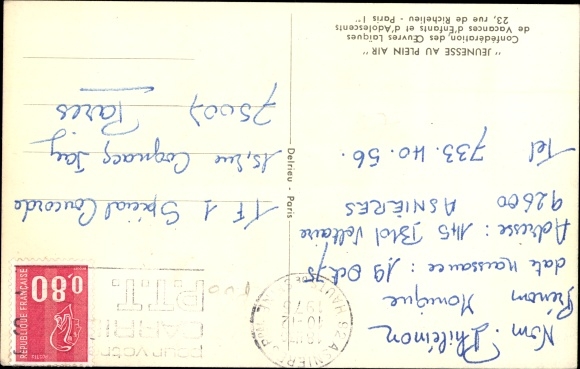 " JEUNESSE AU PLEIN AIR "
Confédération des Œuvres Laïques
de Vacances d'Enfants et d'Adolescents
23, rue de Richelieu - Paris 1er
Delrieu - Paris
Nom : Philémon
Prénom Monique
date naissance : 19 Oct 75
Adresse : 145 Blvd Voltaire
92600 ASNIÈRES
Tel 733.40.56.
TF1 Spécial Concorde
15, rue Cognacq Jay
75007 Paris
0,80
RÉPUBLIQUE FRANÇAISE
POUR VOS
P.T.T.
92 ASNIERES
1975
HAUTS